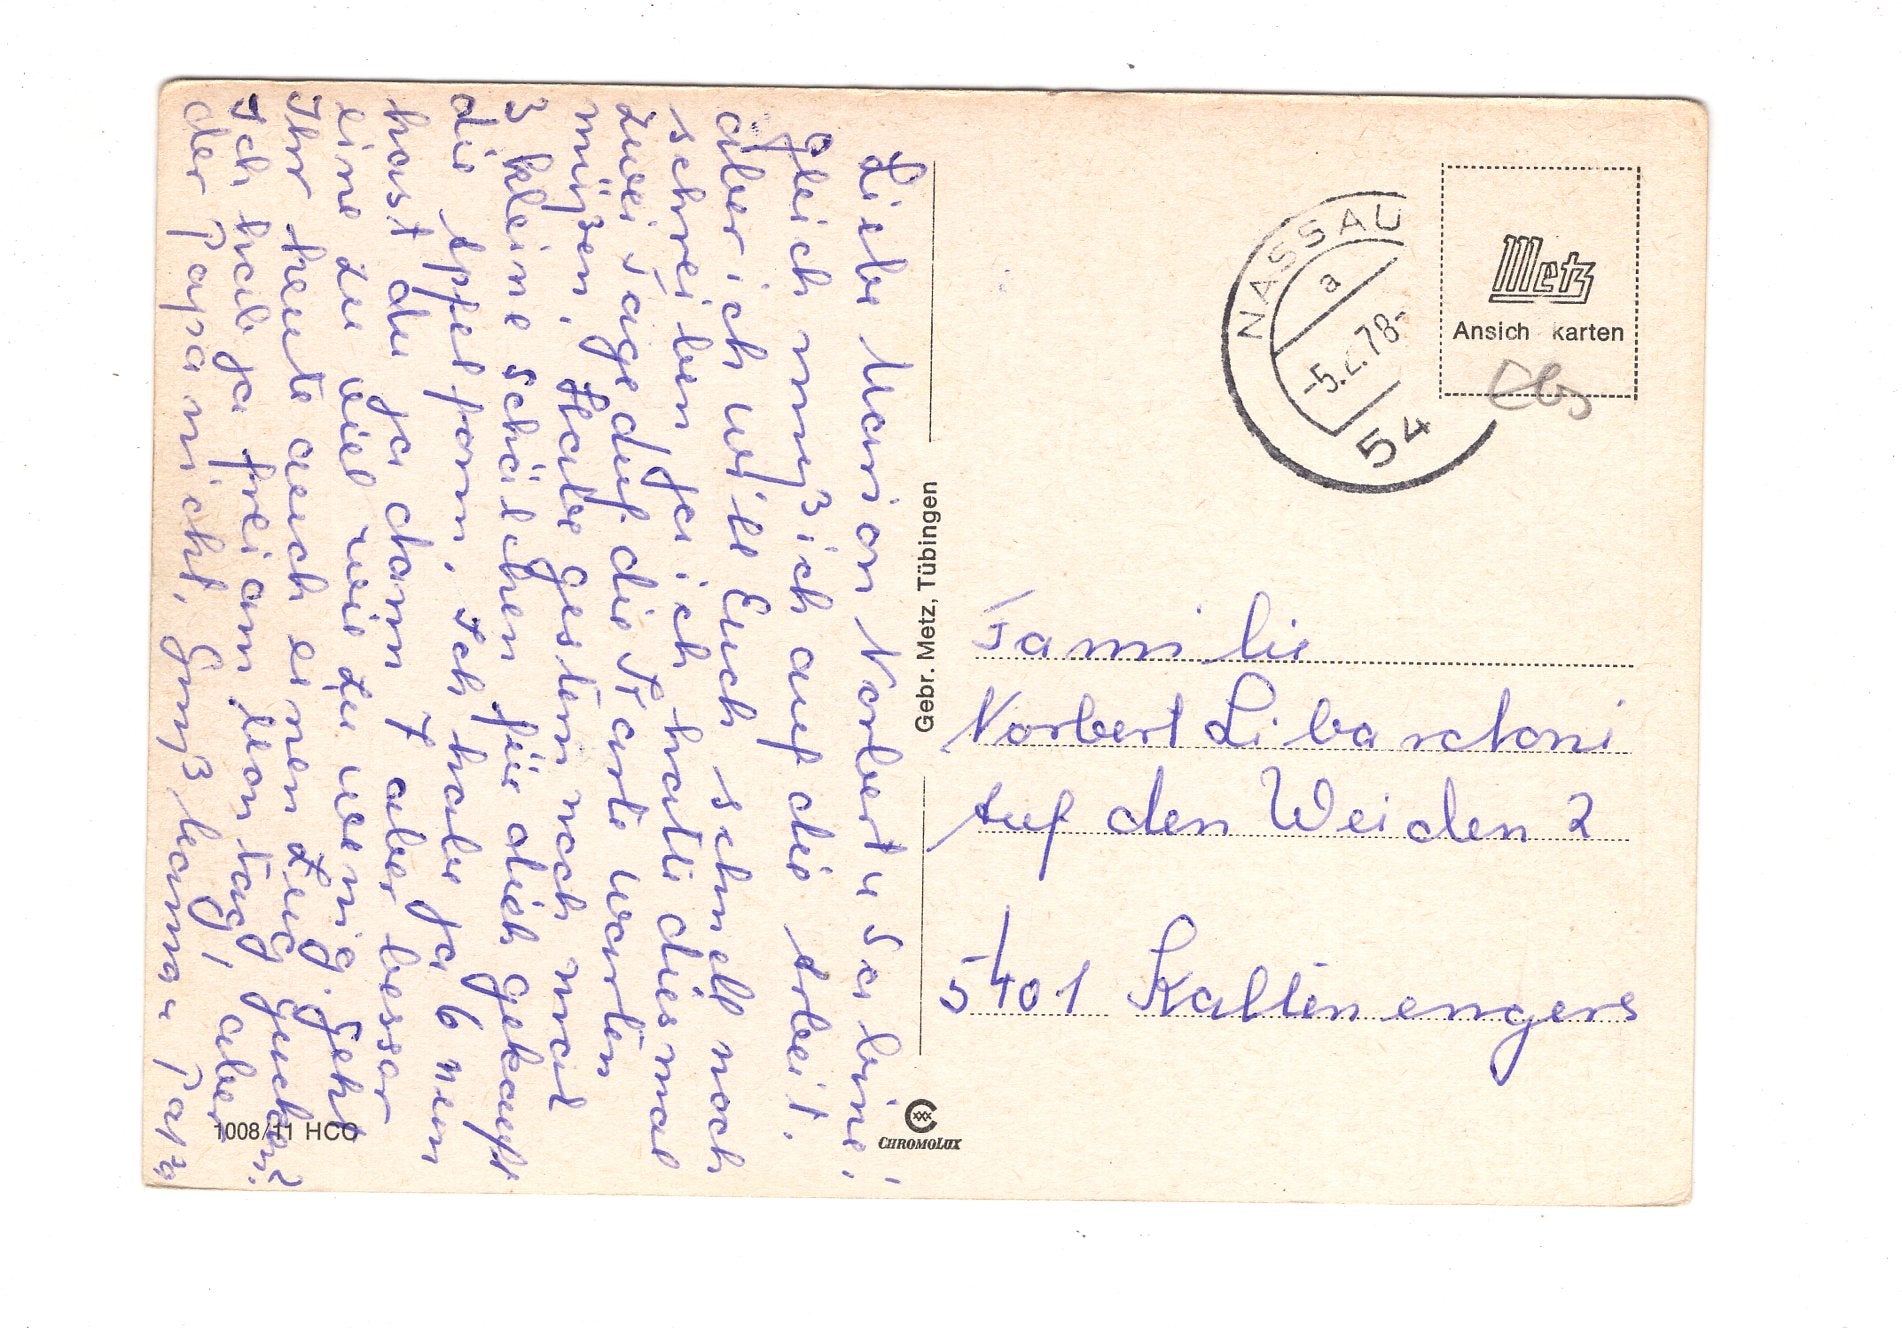 Liebe Marion Norbert u Sabine!
Gleich muß ich auf die Arbeit.
aber ich will Euch schnell noch
schreiben ja ich hatte diesmal
zwei Tage auf die Karte warten
müßen, Habe gestern noch mal
3 kleine schälchen für dich gekauft
die Apfelform, Ich habe ja 6 nun
hast du ja dann 7 aber besser
eine zu viel wie zu wenig, geht
Ihr heute auch einen Zug gucken?
Ich hab ja frei am Montag, aber
der Papa nicht, Gruß Mama u Papa
1008/11 HCO
Gebr. Metz, Tübingen
CHROMOLUX
NASSAU
a
-5.2.78-
54
Metz
Ansich karten
Familie
Norbert
Auf den Weiden 2
5401 Kaltenengers